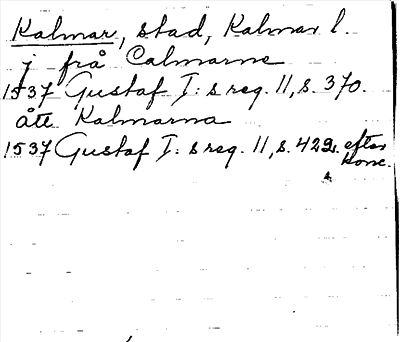 Kalmar, stad, Kalmar l.
j från Calmarne
1537 Gustaf I:s reg. 11, s. 370.
ått Kalmarna
1537 Gustaf I:s reg. 11, s. 422. efter
konc.